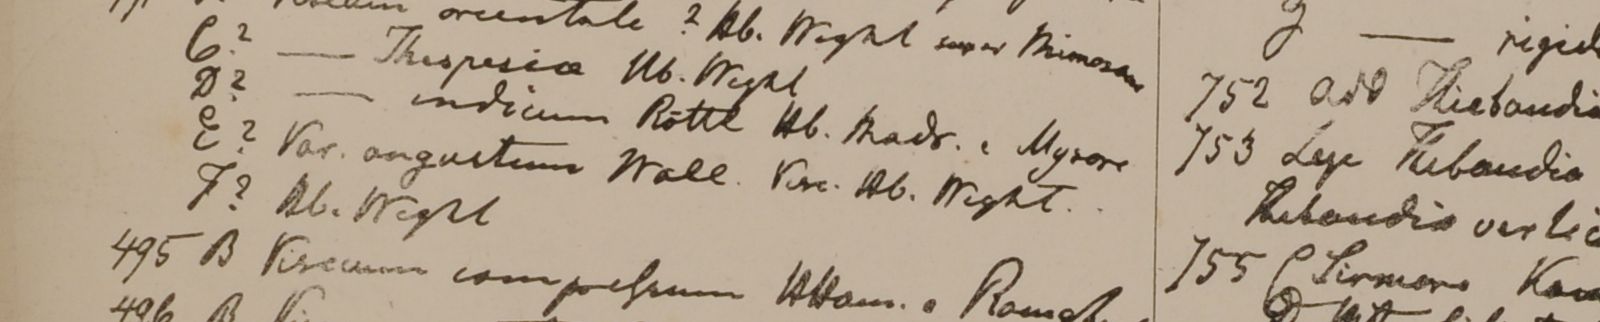 orientale ? Hb. Wight super Mimosam
C? — Thespesiæ Hb. Wight
D? — indicum Rottl Hb. Madr. e Mysore
E? Var. angustum Wall. Visc. Hb. Wight.
F? Hb. Wight
495 B Viscum compressum HHam. e
496 B
— rigid
752 add Thiebaudia
753 Lege Thibaudia
Thibaudia vertic
755